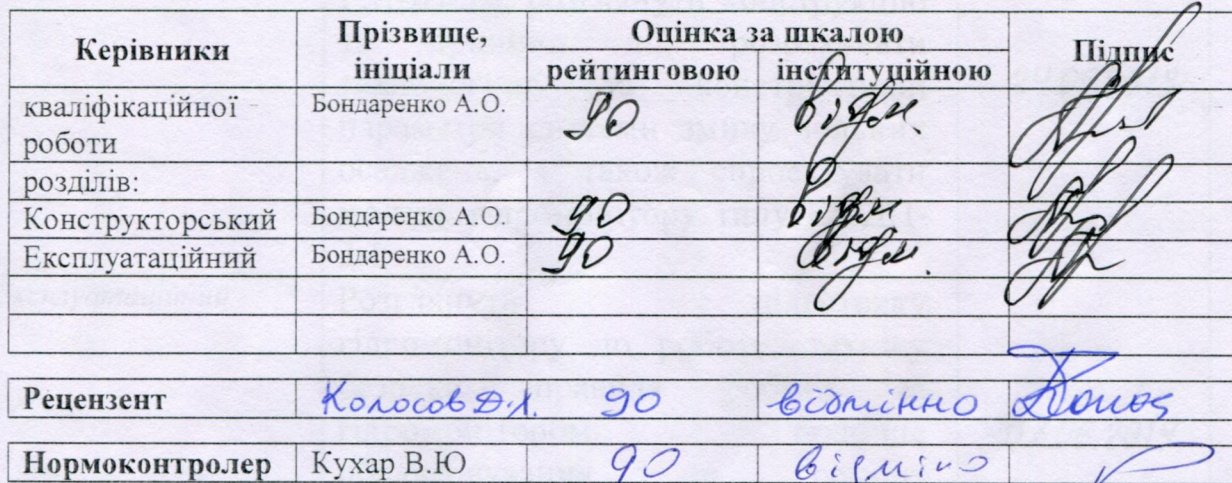 Керівники Прізвище, ініціали Оцінка за шкалою Підпис
рейтинговою інституційною
кваліфікаційної роботи Бондаренко А.О. 90 відм.
розділів:
Конструкторський Бондаренко А.О. 90 відм.
Експлуатаційний Бондаренко А.О. 90 відм.
Рецензент Колосов Д.Л. 90 відмінно
Нормоконтролер Кухар В.Ю 90 відміно